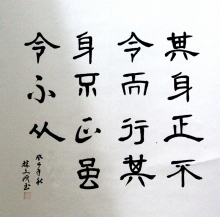 其身正不
令而行其
身不正虽
令不从